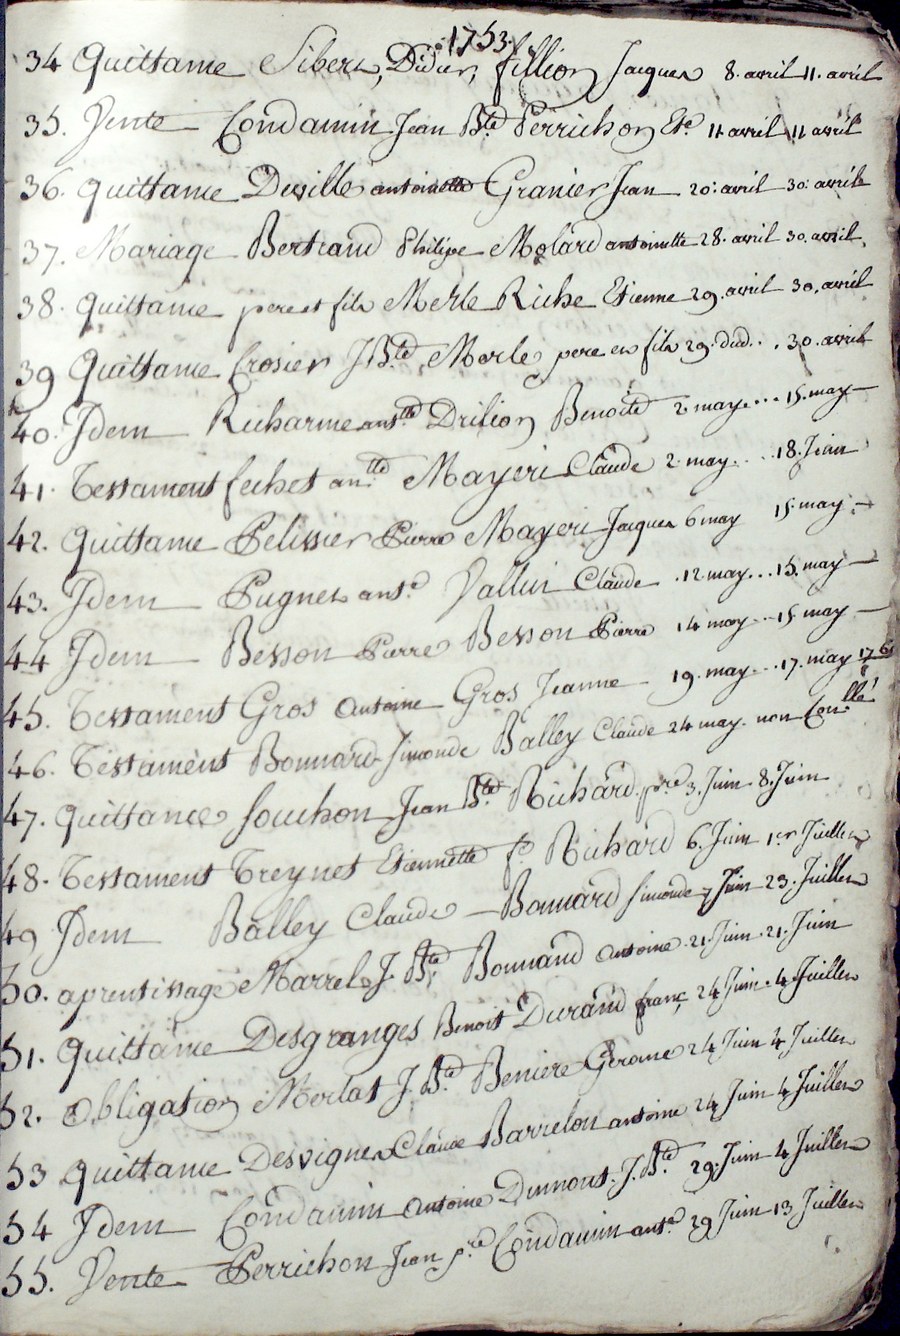 1753.
34 Quittance Sibert, Didier, fillion Jacques 8. avril 11. avril
35. Vente Condamin Jean Bte Perrichon Ete 11 avril 11 avril
36. Quittance Deville antoinette Granier Jean 20. avril 30. avril
37. Mariage Bertrand Philipe Molard antoinette 28. avril 30. avril
38. Quittance pere et fils Merle Riche Etienne 29. avril 30. avril
39 Quittance Crosier J. Bte Merle pere et fils 29. dud... 30. avril
40. Idem Richarme antte Drilion Benoite 2 may... 15. may
41. Testament fechet antte Mayeri Claude 2 may... 18. Juin
42. Quittance Pelissier Pierre Mayeri Jacques 6 may 15. may
43. Idem Pugnet ante Vallui Claude 12 may... 15. may
44 Idem Besson Pierre Besson Pierre 14 may... 15. may
45. Testament Gros Antoine Gros Jeanne 19. may... 17. may
46. Testament Bonnard Simonde Balley Claude 24 may. non Conllé
47. Quittance Souchon Jean Bte Richard pre 3. Juin 8. Juin
48. Testament Treynet Etiennette fe Richard 6. Juin 1er Juillet
49 Idem Balley Claude Bonnard Simonde 7 Juin 23. Juillet
50. aprentissage Marrel J. Bte Bonnand Antoine 21. Juin 21. Juin
51. Quittance Desgranges Benoit Durand franc 24 Juin 4 Juillet
52. Obligation Merlat J. Bte Beniere Gerome 24 Juin 4 Juillet
53 Quittance Desvignes Claude Barrelon antoine 24 Juin 4 Juillet
54 Idem Condamin Antoine Dumont J. Bte 29. Juin 4 Juillet
55. Vente Perrichon Jean pre Condamin ante 29 Juin 13 Juillet